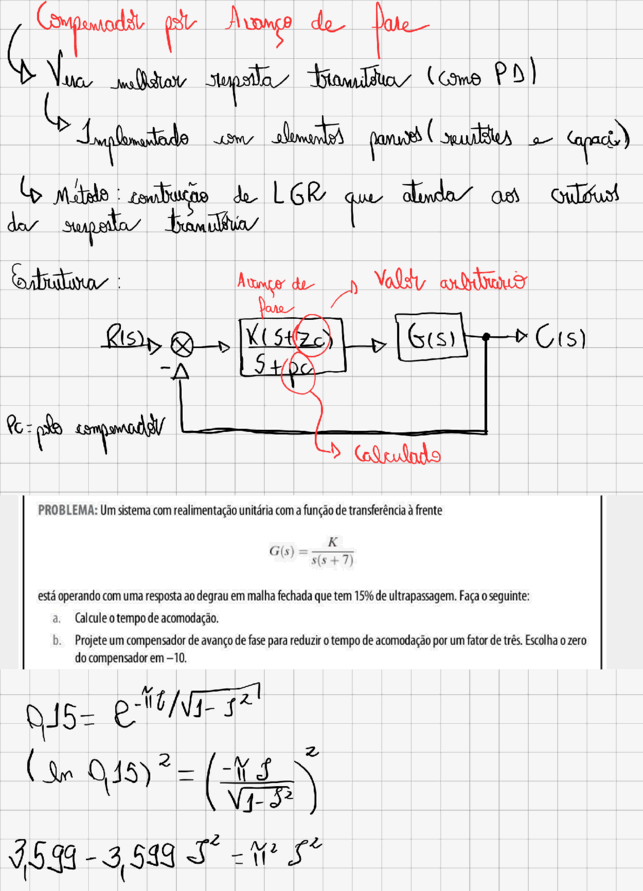 Compensador por Avanço de fase
Visa melhorar resposta transitória (como PD)
Implementado com elementos passivos (resistores e capaci.)
Método: construção de LGR que atenda aos critérios
da resposta transitória
Estrutura:
Avanço de
fase
Valor arbitrario
R(s)
K(S+zc)
S+pc
G(s)
C(s)
-
Pc = polo compensador
Calculado
PROBLEMA: Um sistema com realimentação unitária com a função de transferência à frente
G(s) = K / s(s + 7)
está operando com uma resposta ao degrau em malha fechada que tem 15% de ultrapassagem. Faça o seguinte:
a. Calcule o tempo de acomodação.
b. Projete um compensador de avanço de fase para reduzir o tempo de acomodação por um fator de três. Escolha o zero
do compensador em −10.
0,15 = e^-πζ/√1-ζ²
(ln 0,15)² = (-πζ / √1-ζ²)²
3,599 - 3,599 ζ² = π² ζ²